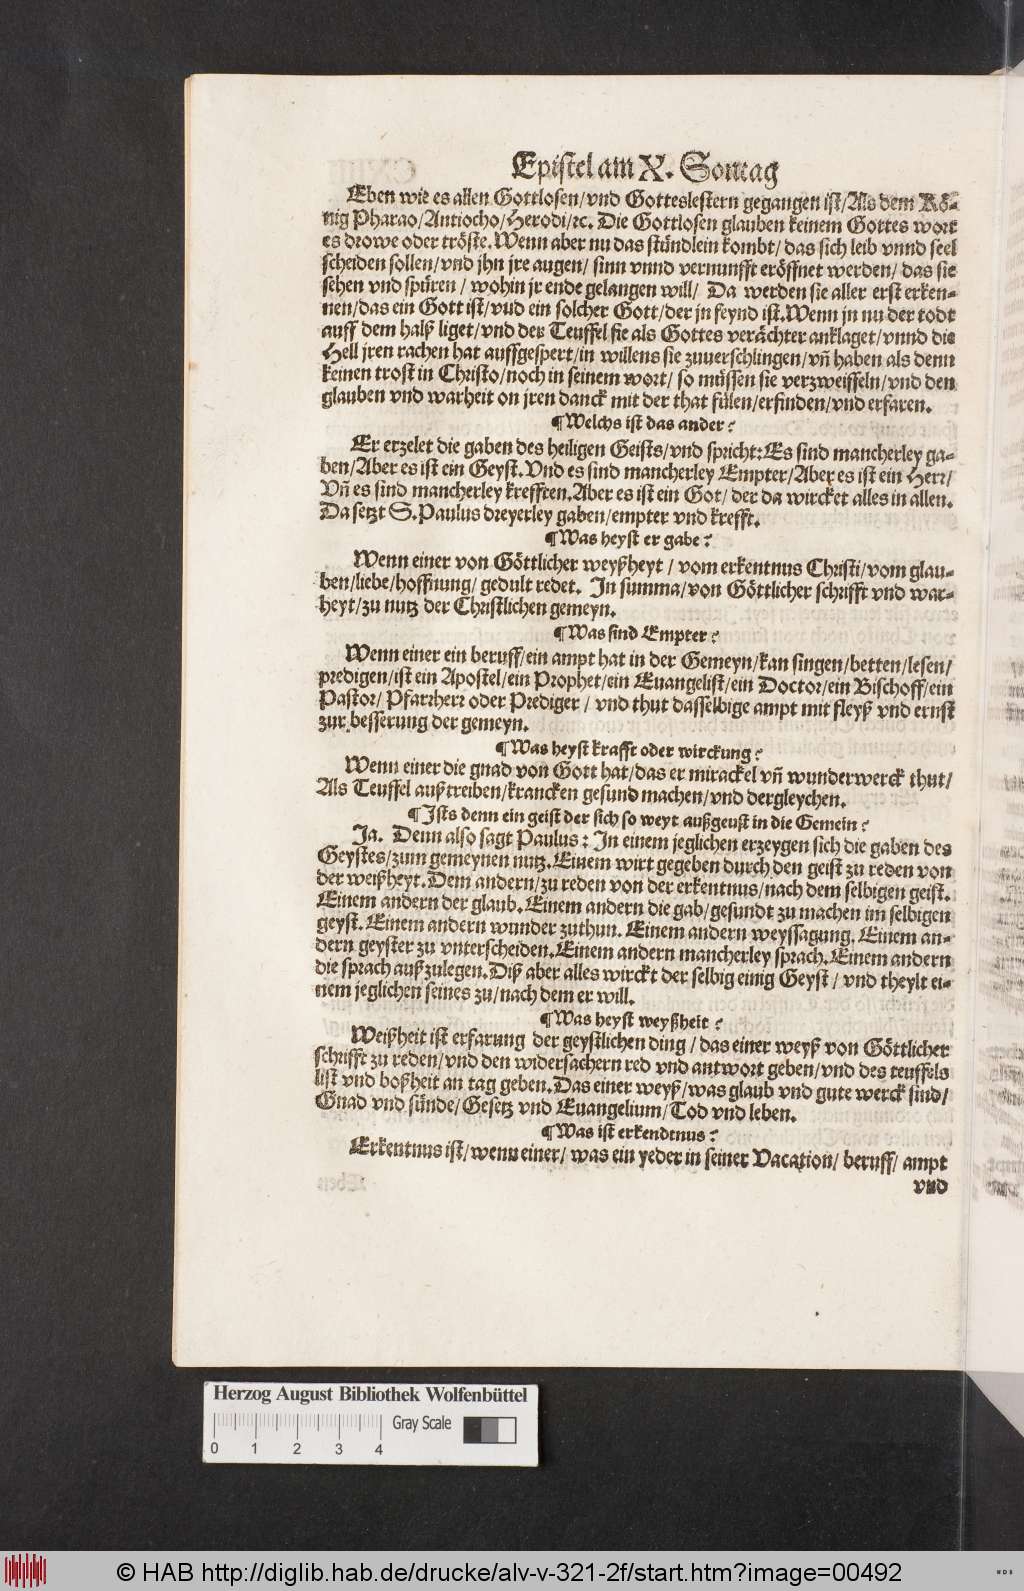 Epistel am X. Sontag
Eben wie es allen Gottlosen/vnd Gotteslestern gegangen ist/Als dem Kö-
nig Pharao/Antiocho/Herodi/rc. Die Gottlosen glauben keinem Gottes wort
es drowe oder tröste. Wenn aber nu das stündlein kombt/das sich leib vnnd seel
scheiden sollen/vnd jhn jre augen/ sinn vnnd vernunfft eröffnet werden/ das sie
sehen vnd spüren / wohin jr ende gelangen will/ Da werden sie aller erst erken-
nen/das ein Gott ist/vnd ein solcher Gott/der jn feynd ist. Wenn jn nu der todt
auff dem halß liget/vnd der Teuffel sie als Gottes verächter anklaget/vnnd die
Hell jren rachen hat auffgespert/in willens sie zuuerschlingen/vñ haben als denn
keinen trost in Christo/noch in seinem wort/ so müssen sie verzweiffeln/vnd den
glauben vnd warheit on jren danck mit der that fülen/erfinden/vnd erfaren.
¶ Welchs ist das ander?
Er erzelet die gaben des heiligen Geists/vnd spricht: Es sind mancherley ga-
ben/Aber es ist ein Geyst. Vnd es sind mancherley Empter/Aber es ist ein Herr/
Vñ es sind mancherley krefften. Aber es ist ein Got/ der da wircket alles in allen.
Da setzt S. Paulus dreyerley gaben/empter vnd krefft.
¶ Was heyst er gabe?
Wenn einer von Göttlicher weyßheyt / vom erkentnus Christi/vom glau-
ben/liebe/hoffnung/ gedult redet. In summa/von Göttlicher schrifft vnd war-
heyt/zu nutz der Christlichen gemeyn.
¶ Was sind Empter?
Wenn einer ein beruff/ein ampt hat in der Gemeyn/kan singen/betten/lesen/
predigen/ist ein Apostel/ein Prophet/ein Euangelist/ein Doctor/ein Bischoff/ein
Pastor/ Pfarrherr oder Prediger / vnd thut dasselbige ampt mit fleyß vnd ernst
zur besserung der gemeyn.
¶ Was heyst krafft oder wirckung?
Wenn einer die gnad von Gott hat/das er mirackel vñ wunderwerck thut/
Als Teuffel außtreiben/krancken gesund machen/vnd dergleychen.
¶ Ists denn ein geist der sich so weyt außgeust in die Gemein?
Ja. Denn also sagt Paulus: In einem jeglichen erzeygen sich die gaben des
Geystes/zum gemeynen nutz. Einem wirt gegeben durch den geist zu reden von
der weißheyt. Dem andern/zu reden von der erkentnus/nach dem selbigen geist.
Einem andern der glaub. Einem andern die gab/gesundt zu machen im selbigen
geyst. Einem andern wunder zuthun. Einem andern weyssagung. Einem an-
dern geyster zu vnterscheiden. Einem andern mancherley sprach. Einem andern
die sprach außzulegen. Diß aber alles wirckt der selbig einig Geyst / vnd theylt ei-
nem jeglichen seines zu/nach dem er will.
¶ Was heyst weyßheit?
Weißheit ist erfarung der geystlichen ding / das einer weyß von Göttlicher
schrifft zu reden/vnd den widersachern red vnd antwort geben/vnd des teuffels
list vnd boßheit an tag geben. Das einer weyß/was glaub vnd gute werck sind/
Gnad vnd sünde/Gesetz vnd Euangelium/Tod vnd leben.
¶ Was ist erkendtnus?
Erkentnus ist/wenn einer/ was ein yeder in seiner Vacation/ beruff/ ampt
vnd
Herzog August Bibliothek Wolfenbüttel
Gray Scale
0 1 2 3 4
© HAB http://diglib.hab.de/drucke/alv-v-321-2f/start.htm?image=00492